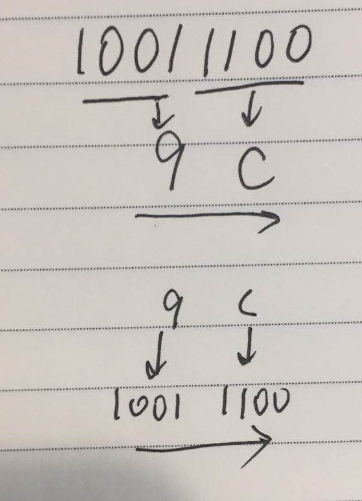 1001 1100
9 C
9 C
1001 1100